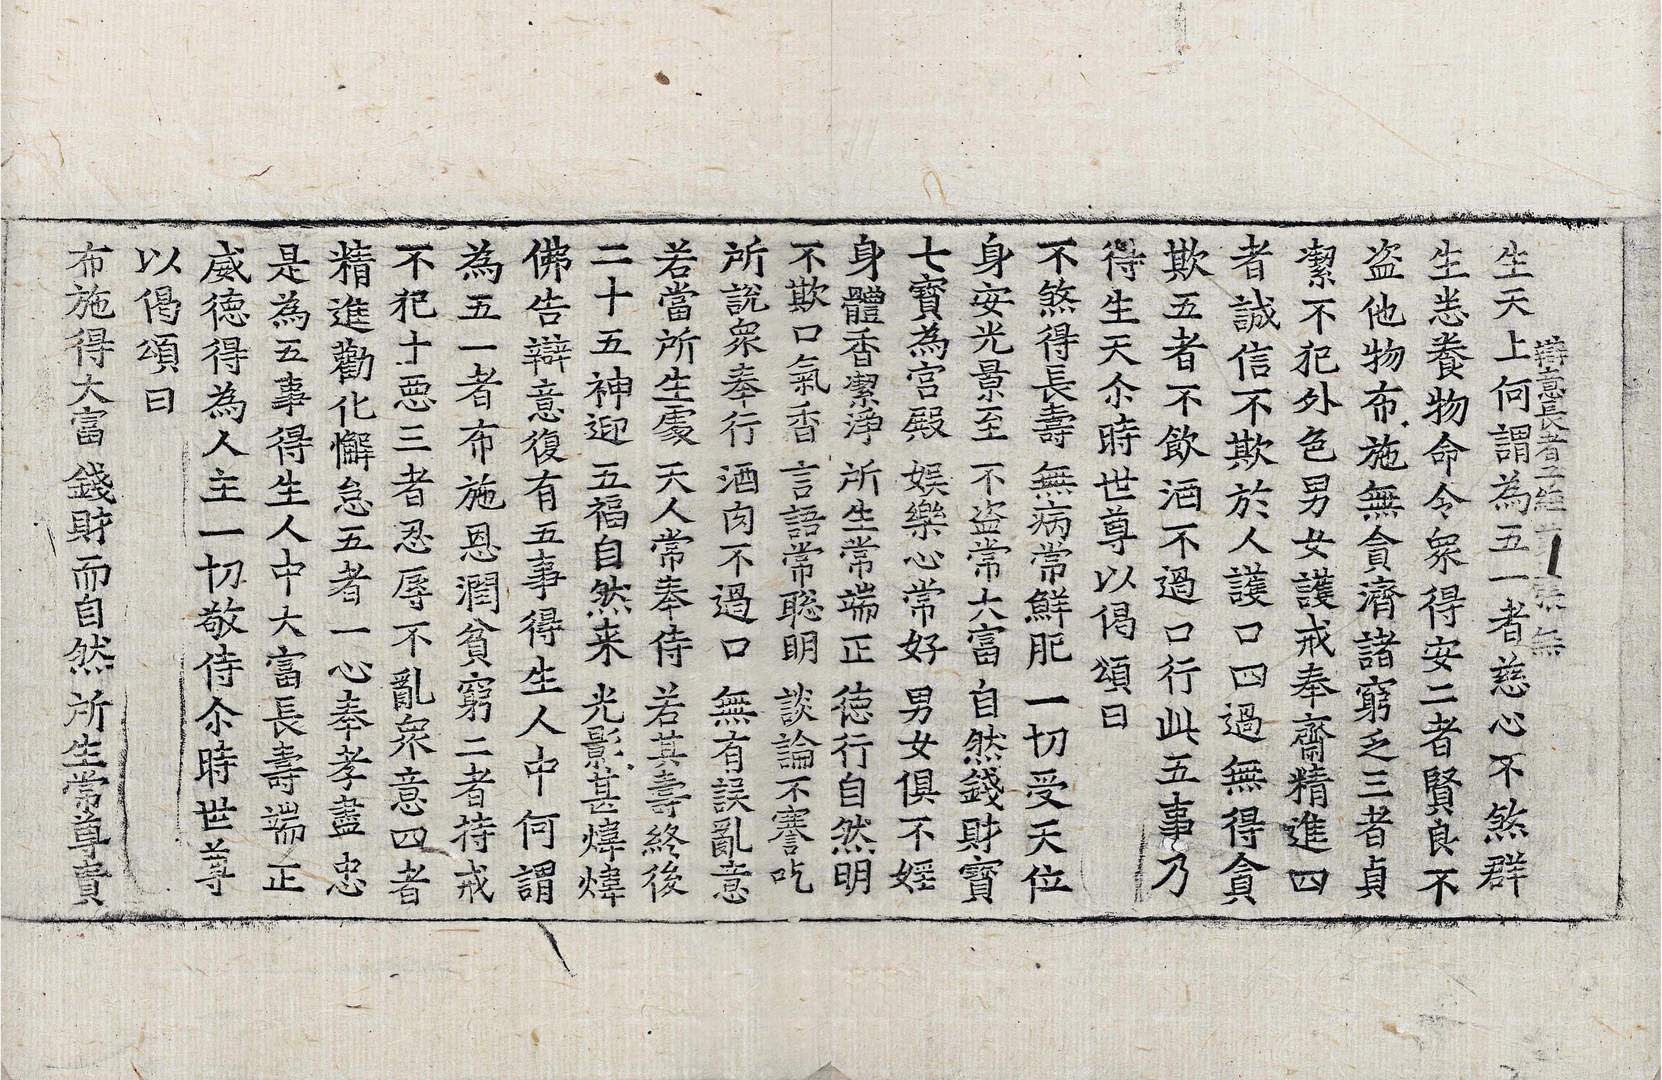 辯意長者子經 張 無
生天上何謂為五一者慈心不煞群
生悉養物命令衆得安二者賢良不
盗他物布施無貪濟諸窮乏三者貞
潔不犯外色男女護戒奉齋精進四
者誠信不欺於人護口四過無得貪
欺五者不飲酒不過口行此五事乃
得生天尒時世尊以偈頌曰
不煞得長壽 無病常鮮肥 一切受天位
身安光景至 不盗常大富 自然錢財寶
七寶為宮殿 娛樂心常好 男女俱不婬
身體香潔淨 所生常端正 德行自然明
不欺口氣香 言語常聡明 談論不謇吃
所說衆奉行 酒肉不過口 無有誤亂意
若當所生處 天人常奉侍 若其壽終後
二十五神迎 五福自然来 光影甚煒煒
佛告辯意復有五事得生人中何謂
為五一者布施恩潤貧窮二者持戒
不犯十悪三者忍辱不亂衆意四者
精進勸化懈怠五者一心奉孝盡忠
是為五事得生人中大富長壽端正
威德得為人主一切敬侍尒時世尊
以偈頌曰
布施得大富 錢財而自然 所生常尊貴